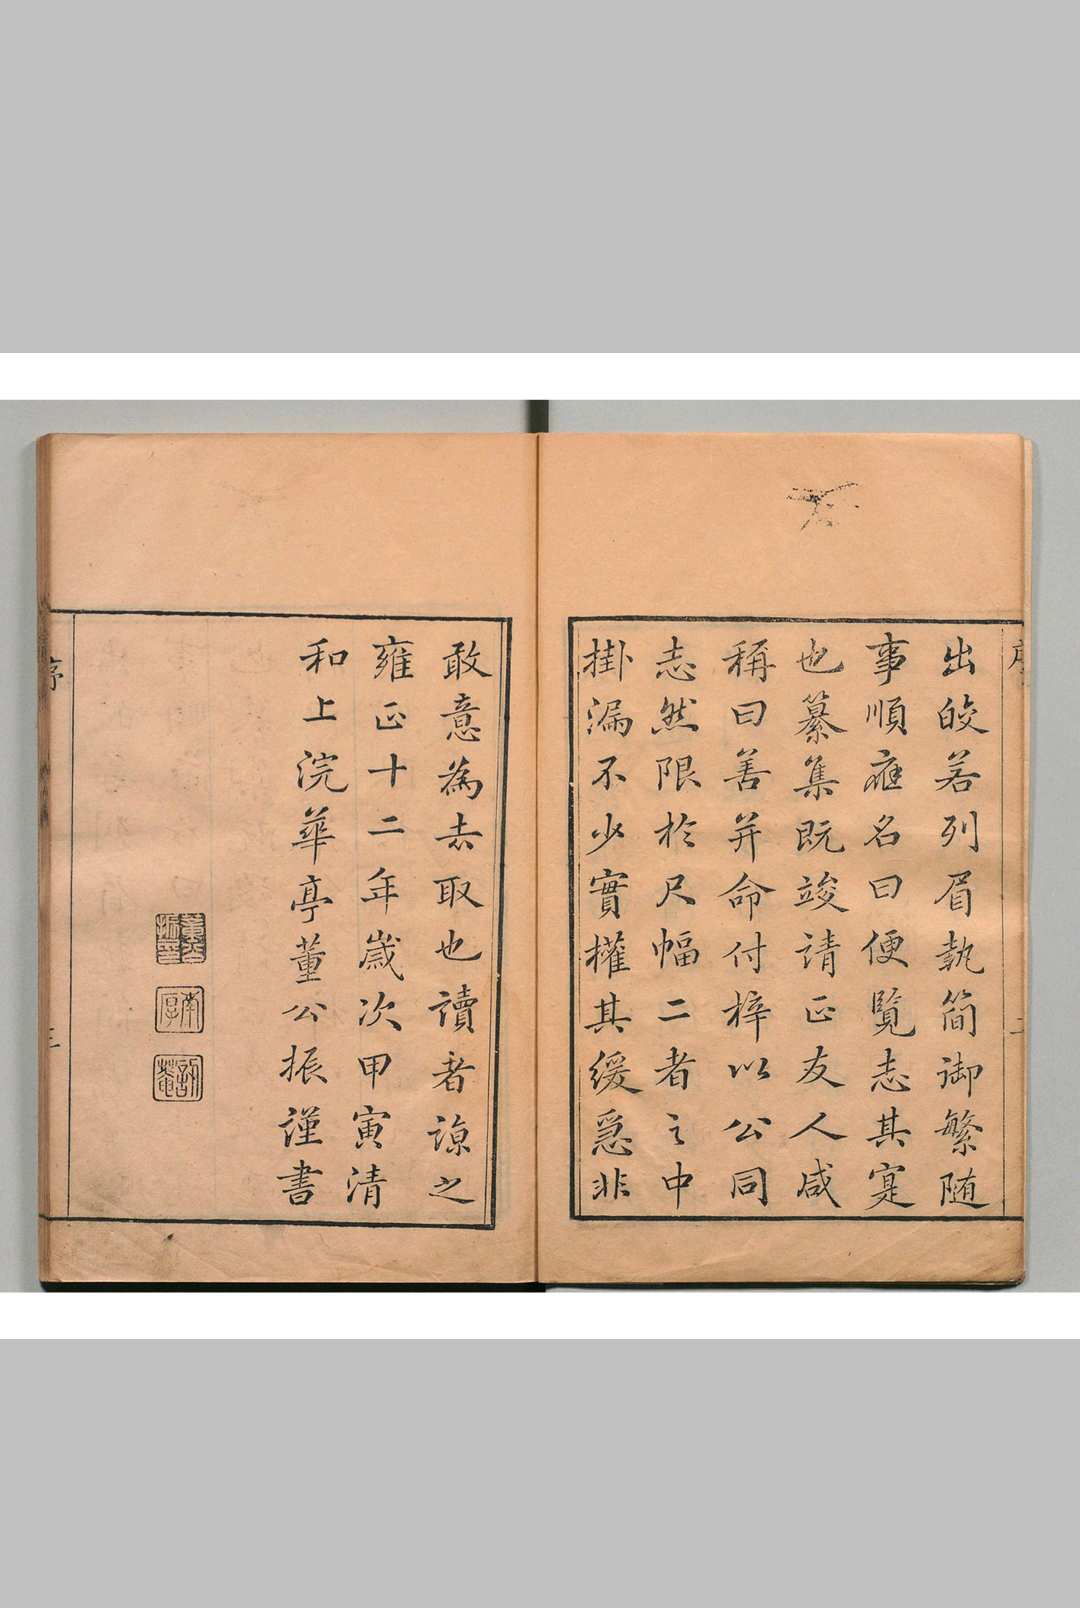 序
二
出皎若列眉執簡御繁随
事順應名曰便覽志其寔
也纂集既竣請正友人咸
稱曰善并命付梓以公同
志然限於尺幅二者之中
掛漏不少實權其緩急非
敢意為去取也讀者諒之
雍正十二年歲次甲寅清
和上浣華亭董公振謹書
序
三